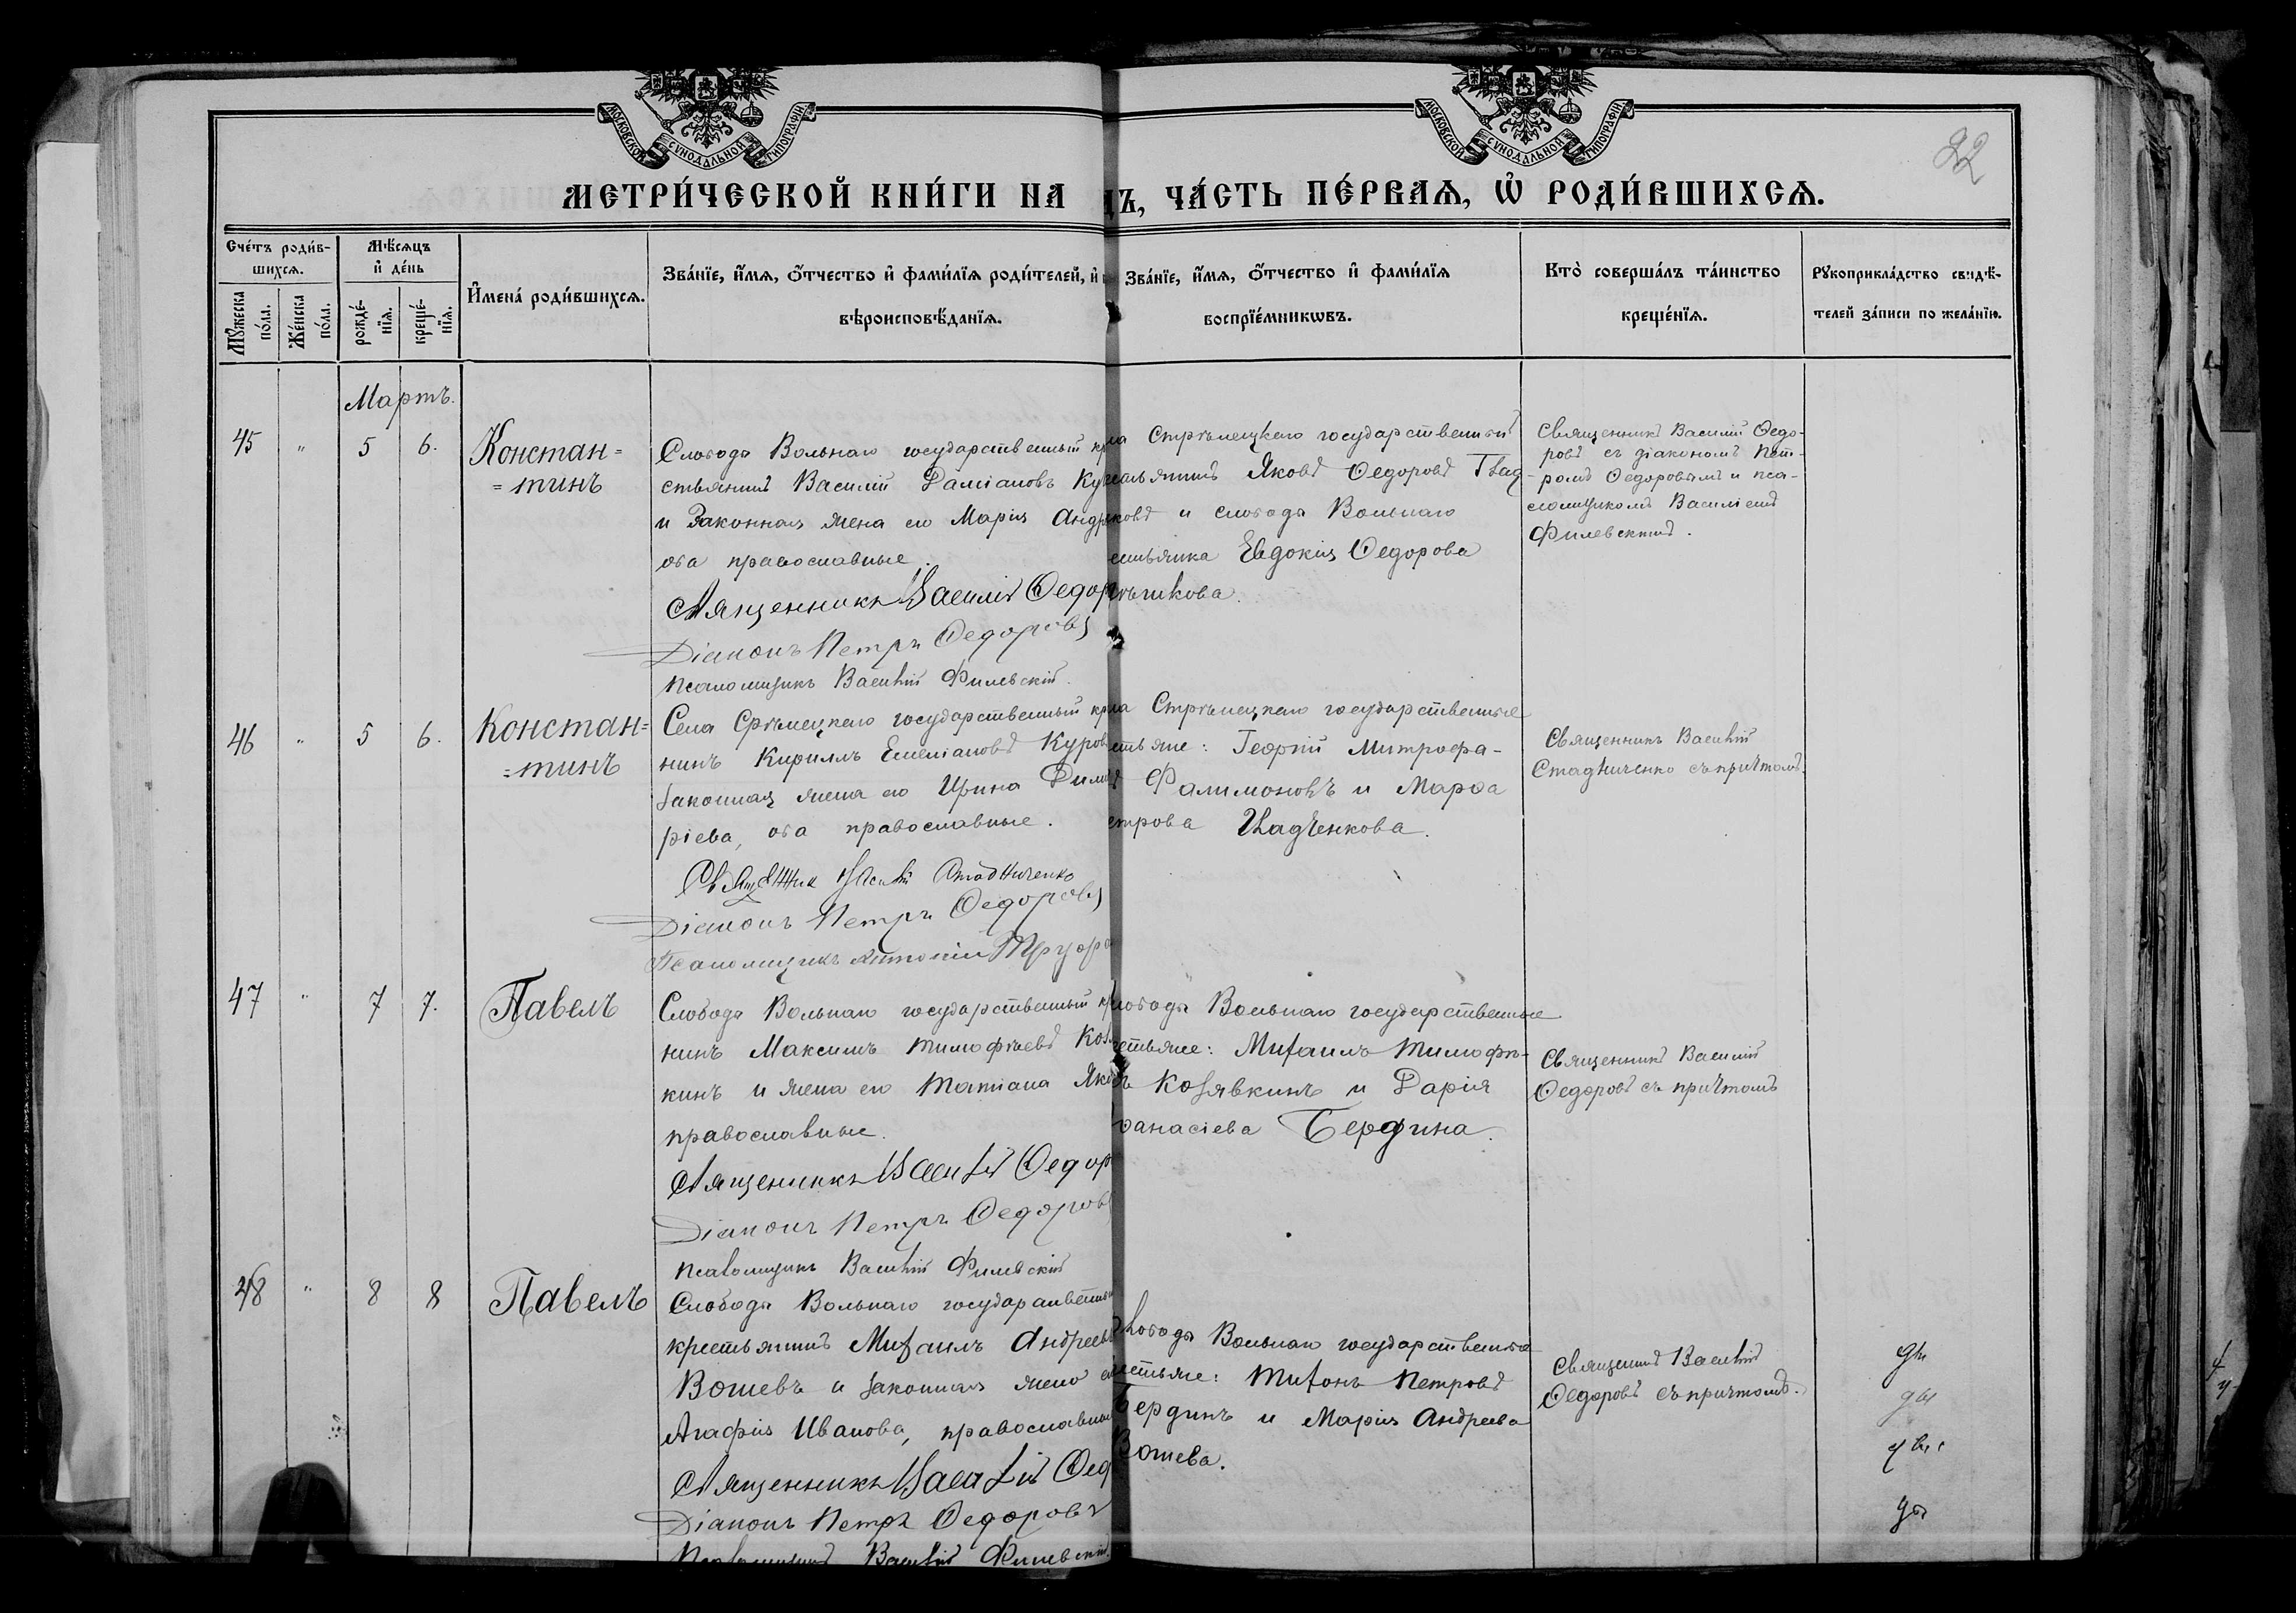 МОСКОВСКОЙ СѴНОДАЛЬНОЙ ТИПОГРАФІИ
МОСКОВСКОЙ СѴНОДАЛЬНОЙ ТИПОГРАФІИ
22
МЕТРИ́ЧЕСКОЙ КНИ́ГИ НА
ДЪ, ЧА́СТЬ ПЕ́РВАЯ, Ѡ҆ РОДИ́ВШИХСЯ.
Сче́тъ роди́в-
шихся.
Мѣ́сяцъ
и҆ де́нь
Мꙋ́жеска по́ла.
Же́нска по́ла.
рожде́-
нїя.
креще́-
нїя.
И҆мена̀ роди́вшихся.
Зва́нїе, и҆́мя, ѻ҆́тчество и҆ фами́лїя роди́телей, и҆
вѣроисповѣ́данїя.
Зва́нїе, и҆́мя, ѻ҆́тчество и҆ фами́лїя
воспрїе́мникѡвъ.
Кто̀ соверша́лъ та́инство
креще́нїя.
Рꙋкоприкла́дство свидѣ́-
телей за́писи по жела́нїю.
Мартъ.
45 " 5 6.
Констан=
=тинъ
Слобода Вольнаго государственный кр
стьянинъ Василій Даміановъ
и Законная жена его Марія Андр
оба православные.
Священникъ Василій Федор
Діаконъ Петръ Федоровъ
Псаломщикъ Василій Филевскій.
ла Стрѣлецкаго государственный
стьянинъ Яковъ Федоровъ
ковъ и слобода Вольнаго
стьянка Евдокія Федорова
Священникъ Василій Федо-
ровъ съ діакономъ Пет-
ромъ Федоровымъ и пса-
ломщикомъ Василіемъ
Филевскимъ.
46 " 5 6.
Констан=
=тинъ
Села Срѣлецкаго государственный кр
нинъ Кириллъ Емеліановъ Куров
Законная жена его Ирина Филип
ріева, оба православные.
Священник Василій Стадниченко
Діаконъ Петръ Федоровъ
Псаломщикъ Антоній
ла Стрѣлецкаго государственные
стьяне: Георгій Митрофа-
Фалимоновъ и Марфа
етрова
Священникъ Василій
Стадниченко съ причтомъ.
47 " 7 7.
Павелъ
Слобода Вольнаго государственный кр
нинъ Максимъ Тимофѣевъ Коз
кинъ и жена его Татіана Яков
православные.
Священникъ Василій Федор
Діаконъ Петръ Федоровъ
Псаломщикъ Василій Филевскій
лобода Вольнаго государственные
естьяне: Михаилъ Тимофѣ-
ъ Козявкинъ и Дарія
фанасіева Бердина.
Священникъ Василій
Федоровъ съ причтомъ
48 " 8 8
Павелъ
Слобода Вольнаго государственный
крестьянинъ Михаилъ Андреевъ
Вошевъ и законная жена его
Агафія Иванова, православные
Священникъ Василій Фед
Діаконъ Петръ Федоровъ
Псаломщикъ Василій Филевскій.
лобода Вольнаго государственные
естьяне: Тихонъ Петровъ
Бердинъ и Марія Андреева
Вошева.
Священникъ Василій
Федоровъ съ причтомъ.